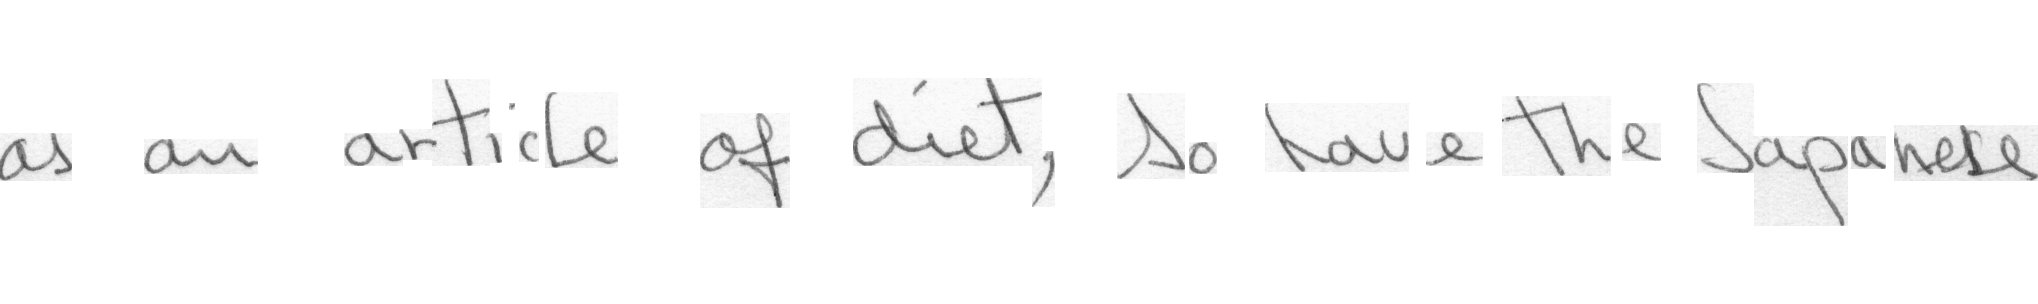 as an article of diet, so have the Japanese